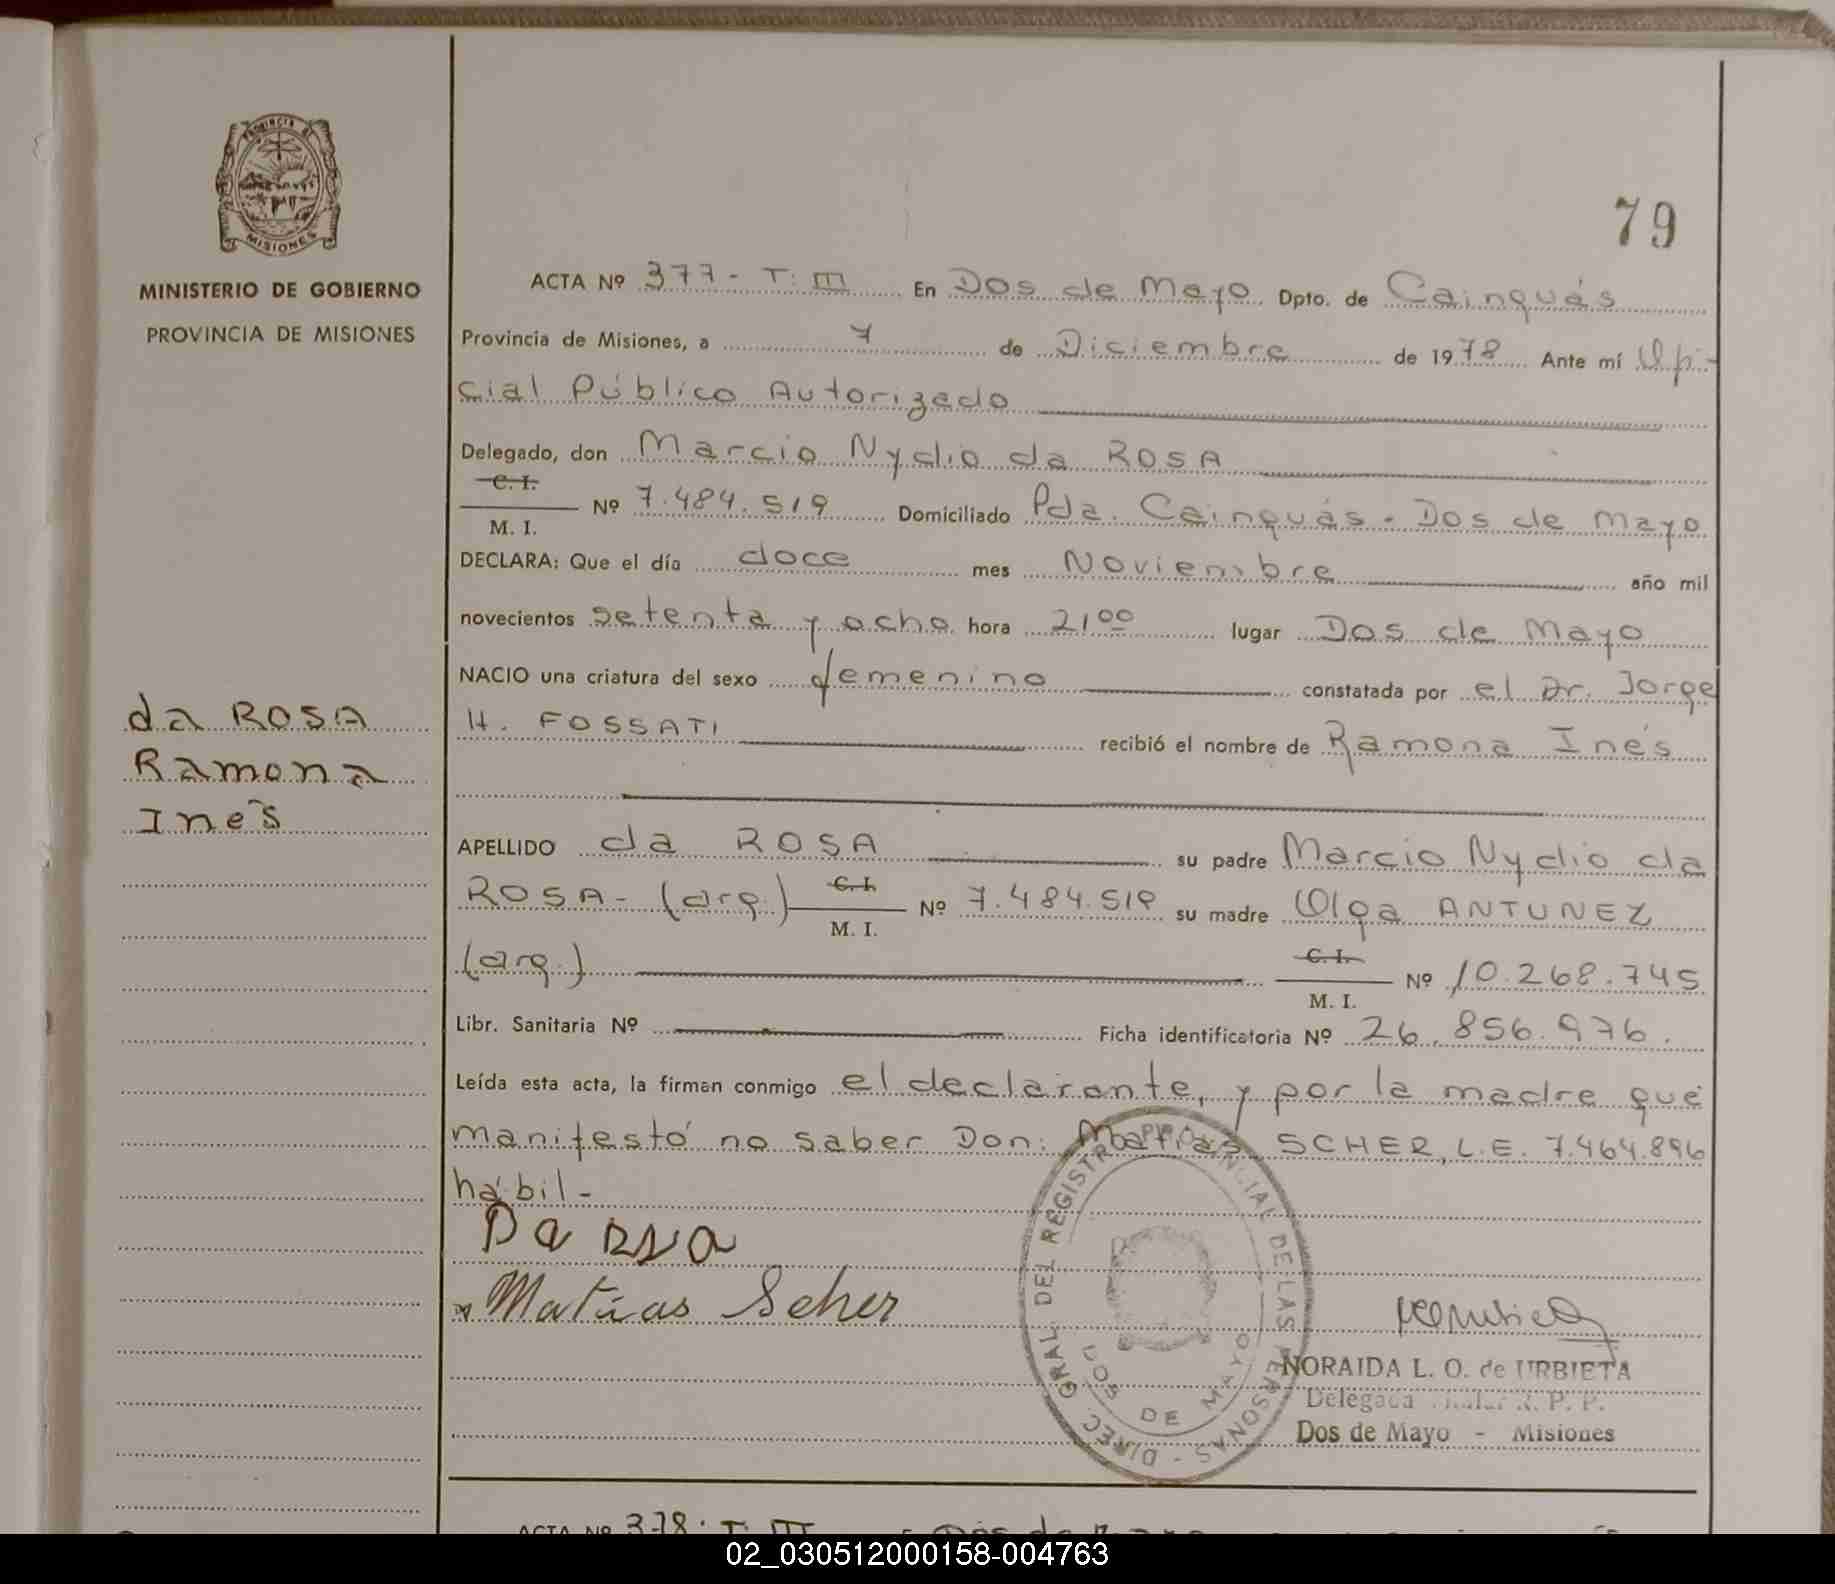 PROVINCIA DE
MISIONES
MINISTERIO DE GOBIERNO
PROVINCIA DE MISIONES
79
ACTA Nº 377 - T: III En Dos de Mayo Dpto. de Cainguás
Provincia de Misiones, a 7 de Diciembre de 1978 Ante mí Ofi-
cial Público Autorizado
Delegado, don Marcio Nydio da ROSA
C. I.
M. I. Nº 7.484.519 Domiciliado Pda. Cainguás - Dos de Mayo
DECLARA: Que el día doce mes Noviembre año mil
novecientos setenta y ocho hora 21⁰⁰ lugar Dos de Mayo
NACIO una criatura del sexo femenino constatada por el Dr. Jorge
H. FOSSATI recibió el nombre de Ramona Inés
da ROSA
Ramona
Inés
APELLIDO da ROSA su padre Marcio Nydio da
ROSA - (arg.) C. I. M. I. Nº 7.484.519 su madre Olga ANTUNEZ
(arg.) C. I. M. I. Nº 10.268.745
Libr. Sanitaria Nº Ficha identificatoria Nº 26.856.976.
Leída esta acta, la firman conmigo el declarante, y por la madre que
manifestó no saber Don: Matías SCHER, L.E. 7.464.896
hábil -
Da Rosa
Matías Scher
DIREC. GRAL. DEL REGISTRO PROVINCIAL DE LAS PERSONAS -
DOS DE MAYO
NORAIDA L. O. de URBIETA
Delegada R. P. P.
Dos de Mayo - Misiones
ACTA Nº 378 - T: III Dos de Mayo
02_030512000158-004763